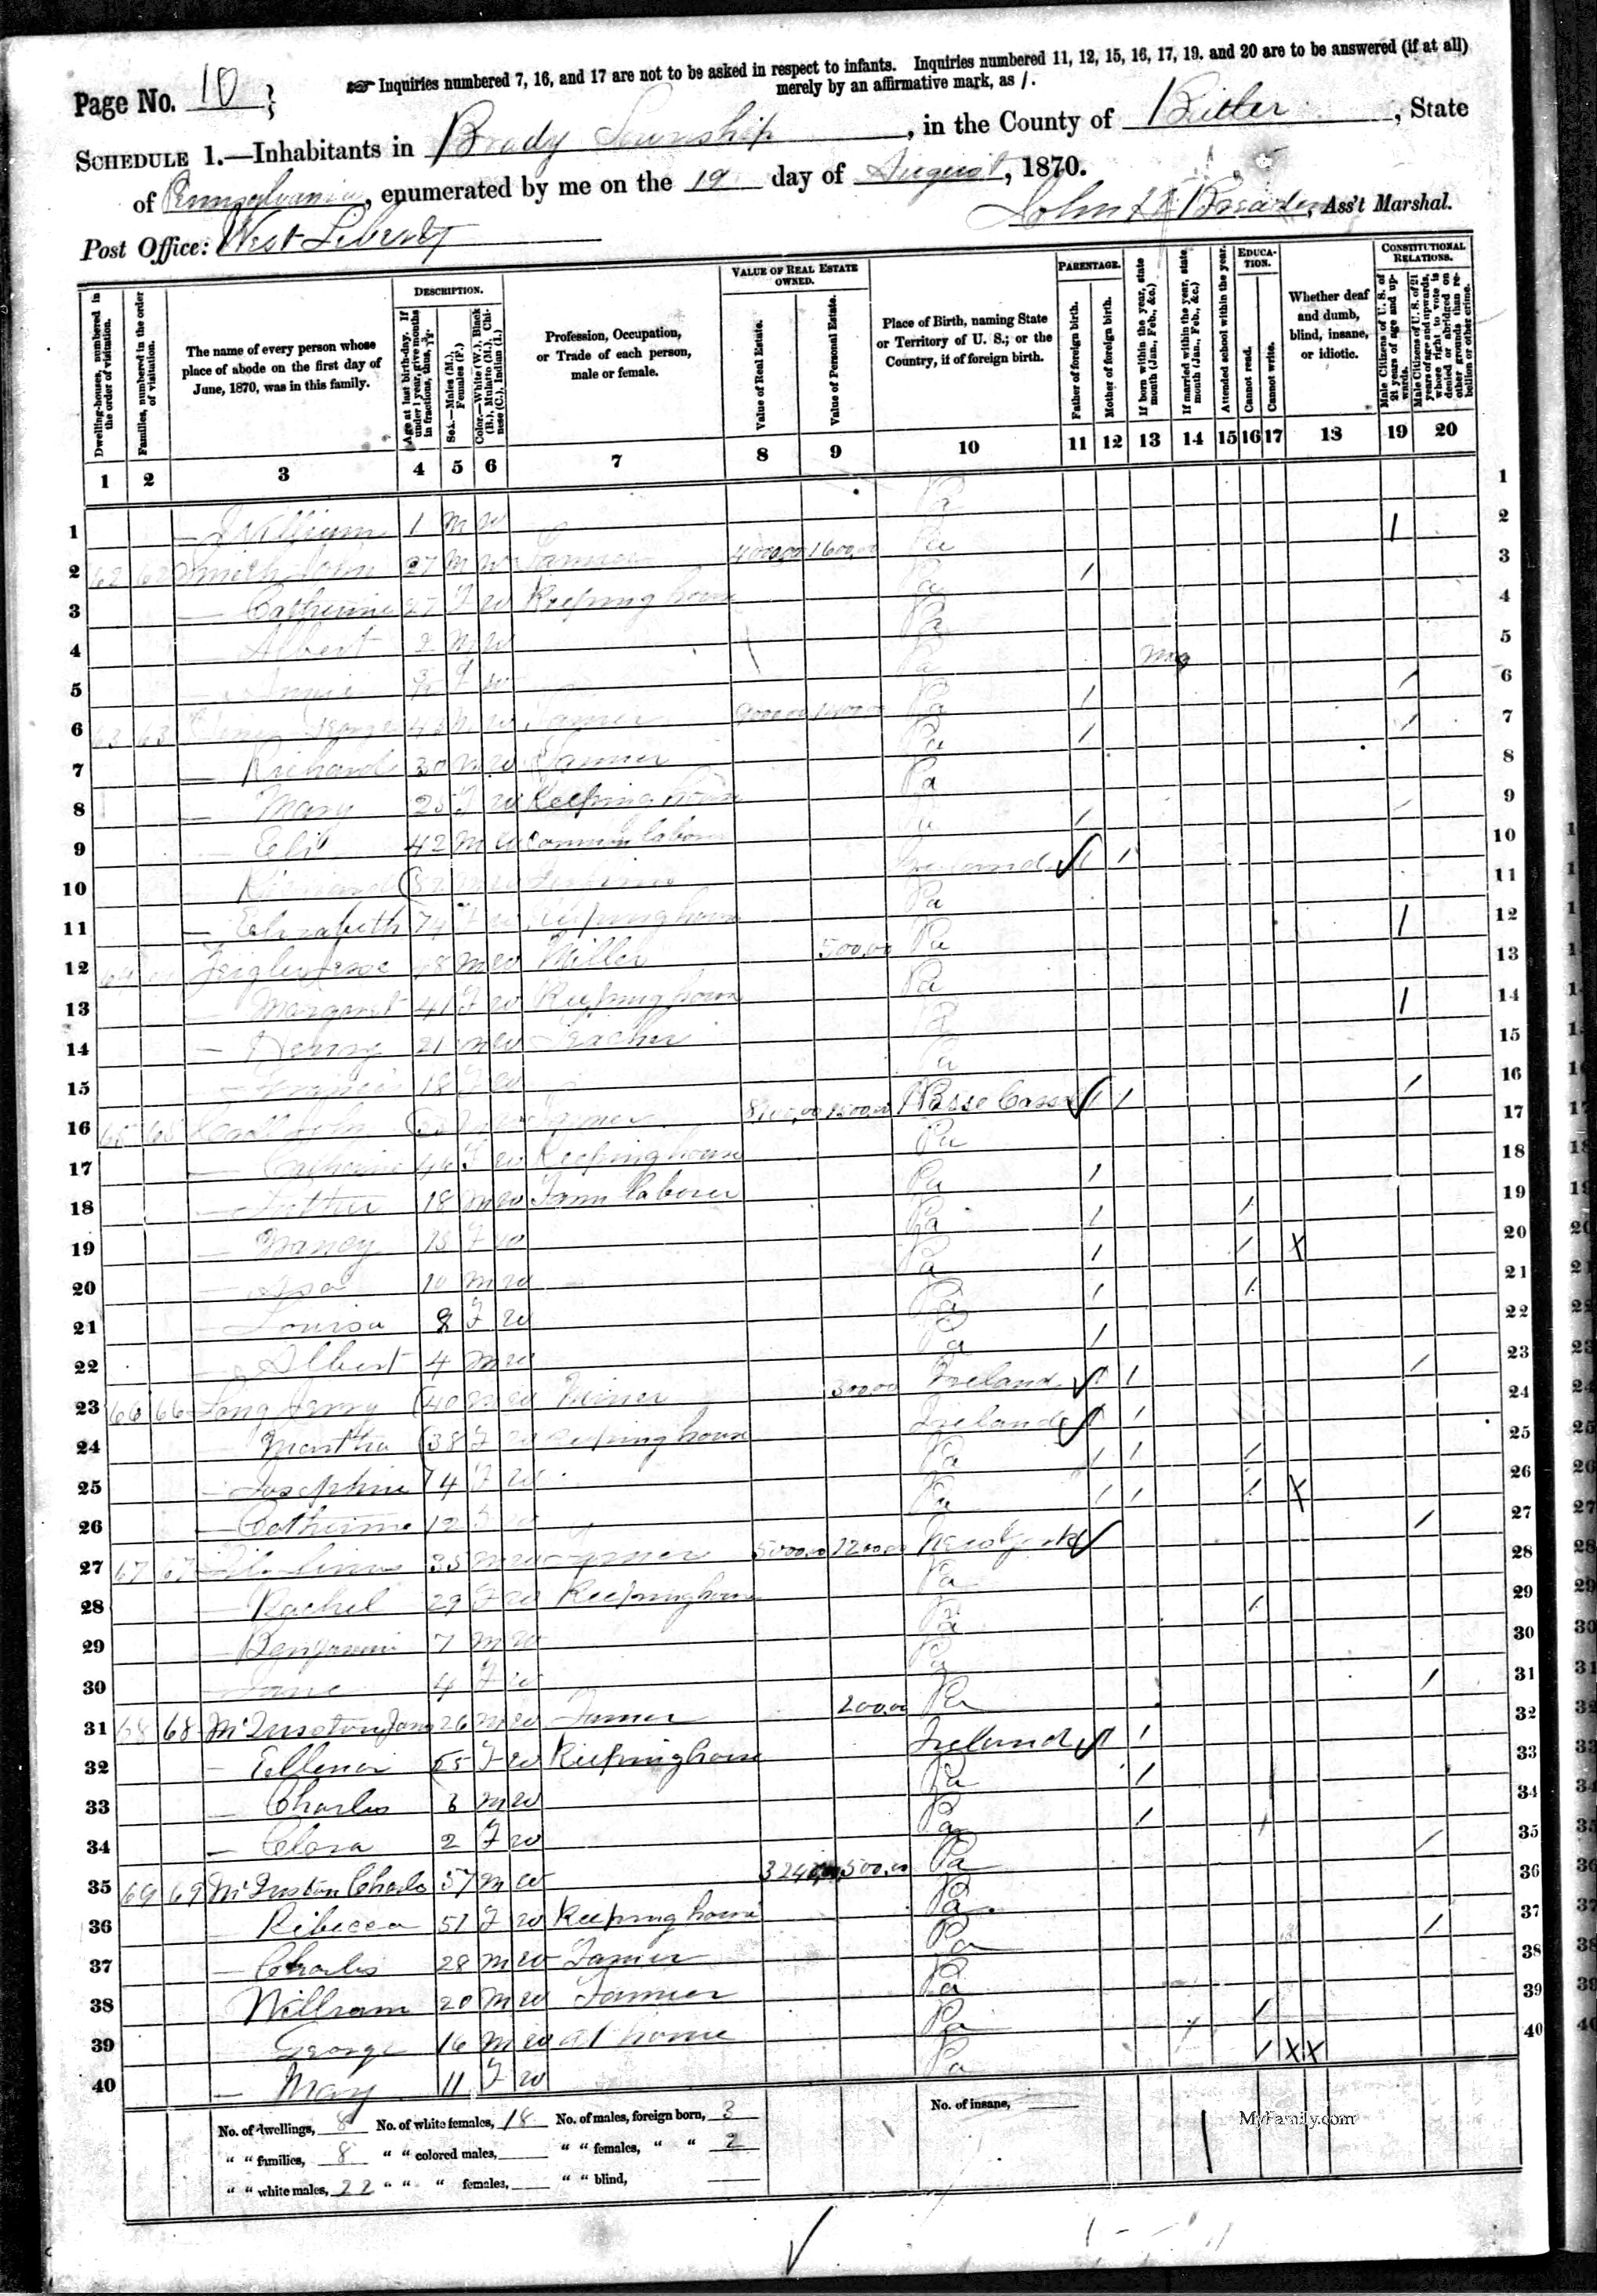 Page No. 10 }
Inquiries numbered 7, 16, and 17 are not to be asked in respect to infants. Inquiries numbered 11, 12, 15, 16, 17, 19, and 20 are to be answered (if at all)
merely by an affirmative mark, as /.
SCHEDULE 1.—Inhabitants in Brady Township, in the County of Butler, State
of Pennsylvania, enumerated by me on the 19 day of August, 1870.
Post Office: West Liberty
John Ass't Marshal.
Dwelling-houses, numbered in the order of visitation.
Families, numbered in the order of visitation.
The name of every person whose place of abode on the first day of June, 1870, was in this family.
DESCRIPTION.
Age at last birth-day. If under 1 year, give months in fractions, thus,
Sex.—Males (M.), Females (F.)
Color.—White (W.), Black (B.), Mulatto (M.), Chinese (C.), Indian (I.)
Profession, Occupation, or Trade of each person, male or female.
VALUE OF REAL ESTATE OWNED.
Value of Real Estate.
Value of Personal Estate.
Place of Birth, naming State or Territory of U. S.; or the Country, if of foreign birth.
PARENTAGE.
Father of foreign birth.
Mother of foreign birth.
If born within the year, state month (Jan., Feb., &c.)
If married within the year, state month (Jan., Feb., &c.)
Attended school within the year.
EDUCATION.
Cannot read.
Cannot write.
Whether deaf and dumb, blind, insane, or idiotic.
CONSTITUTIONAL RELATIONS.
Male Citizens of U. S. of 21 years of age and upwards.
Male Citizens of U. S. of 21 years of age and upwards, whose right to vote is denied or abridged on other grounds than rebellion or other crime.
1 2 3 4 5 6 7 8 9 10 11 12 13 14 15 16 17 18 19 20
1 — William 1 m w Pa 1
2 62 62 Smith John 27 m w Farmer 4000,00 1600,00 Pa / 2
3 — Catherine 27 F w Keeping house Pa / 3
4 — Albert 2 m w Pa 4
5 — Annie F w Pa 5
6 63 63 George m w Farmer Pa / / 6
7 — Richard 30 m w Farmer Pa / / 7
8 — Mary 25 F w Keeping house Pa 8
9 — Eli 42 m w Common labor Pa / / 9
10 — Richard m w Ireland / / 10
11 — Elizabeth 74 F w Keeping house Pa 11
12 64 64 Jesse 48 m w Miller 500,00 Pa / 12
13 — Margaret 41 F w Keeping house Pa 13
14 — Henry 21 m w Teacher Pa / 14
15 — 18 F w Pa 15
16 65 65 John m w Farmer Hesse Cassel / / / 16
17 — Catherine 46 F w Keeping house Pa 17
18 — 18 m w Farm laborer Pa / 18
19 — Nancy F w Pa / / 19
20 — Asa 10 m w Pa / / X 20
21 — Louisa 8 F w Pa / / 21
22 — Albert 4 m w Pa / 22
23 66 66 Long 40 m w 300,00 Ireland / / / 23
24 — Martha 38 F w Keeping house Ireland / / 24
25 — Josephine 14 F w Pa / / / 25
26 — Catherine 12 F w Pa / / / X 26
27 67 67 35 m w Farmer 5000,00 1200,00 New York / 27
28 — Rachel 29 F w Keeping house Pa 28
29 — Benjamin 7 m w Pa / 29
30 — Jane 4 F w Pa 30
31 68 68 26 m w Farmer 200,00 Pa / 31
32 — Ellenor 25 F w Keeping house Ireland / / 32
33 — Charles 3 m w Pa / 33
34 — Clara 2 F w Pa / 34
35 69 69 Charls 57 m w 500,00 Pa / 35
36 Rebecca 51 F w Keeping house Pa 36
37 — Charles 28 m w Farmer Pa / 37
38 William 20 m w Farmer Pa 38
39 George 16 m w at home Pa / 39
40 — Mary 11 F w Pa / X X 40
No. of dwellings, 8 No. of white females, 18 No. of males, foreign born, 3 No. of insane,
" " families, 8 " " colored males, " " females, " " 2
" " white males, 22 " " " females, " " blind,
MyFamily.com